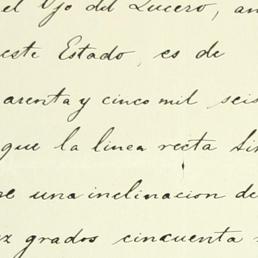 el Ojo del Lucero, an
este Estado, es de
arenta y cinco mil seis
que la linea recta tir
una inclinacion de
ez grados cincuenta